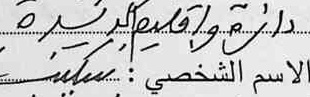 دائرة واقليم الدريوش
الاسم الشخصي : سكينة